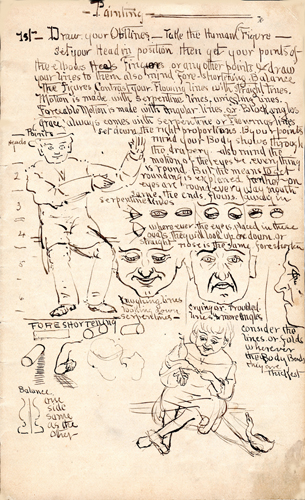 Painting
1st— Draw your Outlines — Take the Human Figure —
Set your Head in position then get your points of
the elbows Heels Fingers or any other points & draw
your lines to them also mind Fore-shortening. Balance
The Figures Contrast your Flowing lines with straight lines.
Motion is made with serpentine lines, winging lines.
Forceable Motion is made with angular lines or broad angles
grace always comes with serpentine or Flowing lines
Points
set down the right proportions. By our points
heads
mind your Body shades through
the drapery. also mind the
motion of the eyes & everything
is round. But the means to get
roundness is explained further
eyes are round every way
serpentine lines
wherever the eyes are placed in these
ovals, they will look up or down, or
straight
nose is the same foreshorten
Laughing lines
looking down
serpentine
crying or Troubled
lines & more angles
FORESHORTENING
consider the
lines or folds
wherever
the Body Bends
they are
Thickest
Balance
one
side
same
as the
other